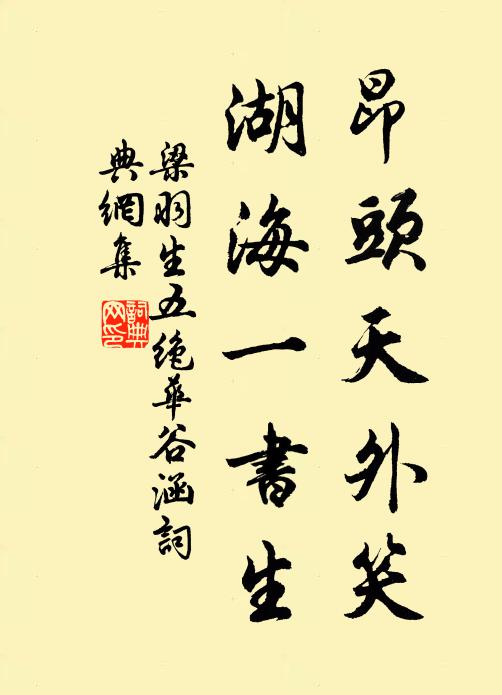 昂頭天外笑
湖海一書生
梁羽生五絶華谷涵詞
典網集
詞典
网印